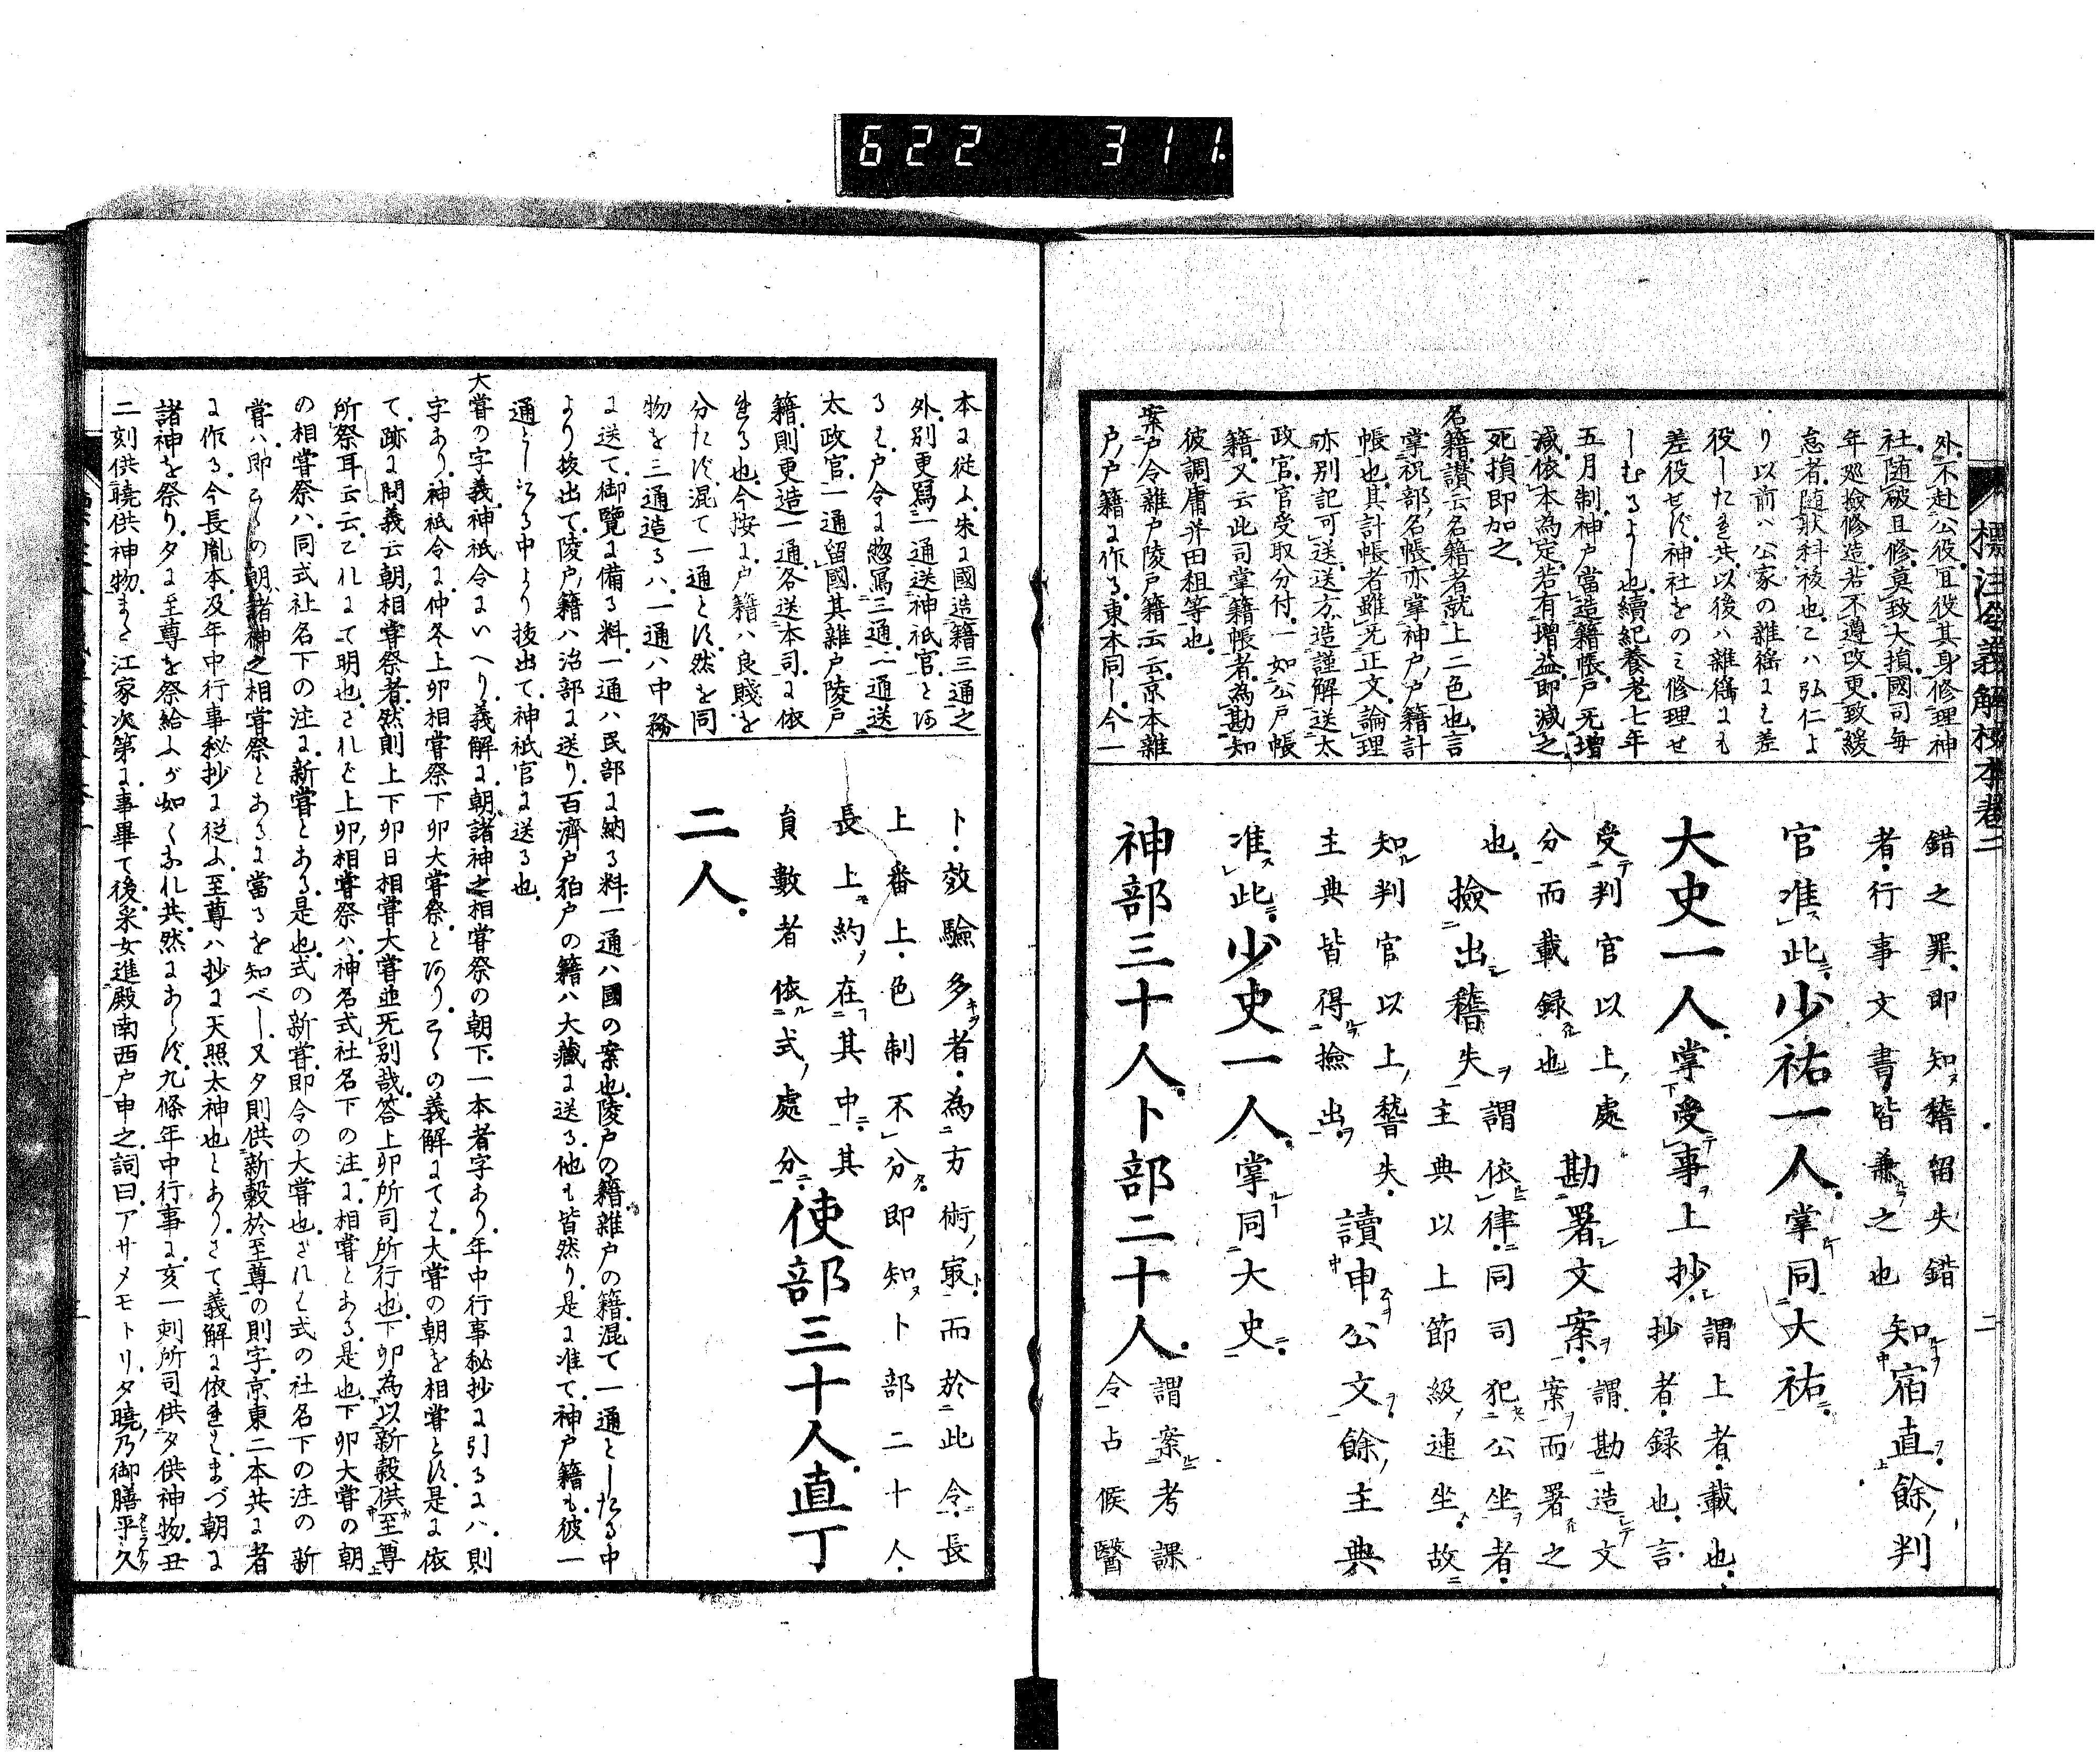 622 311
標注令義解校本 卷二
二
外不赴公役宜役其身修理神
社隨破且修莫致大損國司毎
年巡撿修造若不遵改更致緩
怠者隨狀科祓也コハ弘仁よ
り以前ハ公家の雜徭にも差
役したれ共以後ハ雜徭にも
差役せず神社をのミ修理せ
しむるよし也續紀養老七年
五月制神戸當造籍帳戸无増
減依本為定若有增益即減之
死損即加之
名籍讃云名籍者就上二色也言
掌祝部名帳亦掌神戸戸籍計
帳也其計帳者雖无正文論理
亦別記可送送方造謹解送太
政官官受取分付一如公戸帳
籍又云此司掌籍帳者為勘知
彼調庸并田租等也
案戸令雜戸陵戸籍云云京本雜
戸戸籍に作る東本同し今一
錯之罪即知稽留失錯
者行事文書皆兼之也知宿直餘判
官准此少祐一人掌同大祐
大史一人掌受事上抄謂上者載也抄者録也言
受判官以上處分而載録也勘署文案謂勘造文案而署之
也撿出稽失謂依律同司犯公坐者主典以上節級連坐故
知判官以上稽失主典皆得撿出讀申公文餘主典
准此少史一人掌同大史
神部三十人卜部二十人謂案考課令占候醫
本に從ふ朱に國造籍三通之
外別更寫一通送神祇官とあ
るも戸令に惣寫三通一通送
太政官一通留國其雜戸陵戸
籍則更造一通各送本司に依
れる也今按に戸籍ハ良賤を
分たず混て一通とす然を同
物を三通造るハ一通ハ中務
に送て御覽に備る料一通ハ民部に納る料一通ハ國の案也陵戸の籍雜戸の籍混て一通としたる中
より抜出て陵戸籍ハ治部に送り百濟戸狛戸の籍ハ大藏に送る他も皆然り是に准て神戸籍も彼一
通としたる中より抜出て神祇官に送る也
大嘗の字義神祇令にいへり義解に朝諸神之相嘗祭の朝下一本者字あり年中行事秘抄に引るハ則
字あり神祇令に仲冬上卯相嘗祭下卯大嘗祭とあり こゝの義解にても大嘗の朝を相嘗とす是に依
て跡に問義云朝相嘗祭者然則上下卯日相嘗大嘗並无別哉答上卯所司所行也下卯為以新穀供至尊
所祭耳云云これにて明也されど上卯相嘗祭ハ神名式社名下の注に相嘗とある是也下卯大嘗の朝
の相嘗祭ハ同式社名下の注に新嘗とある是也式の新嘗即令の大嘗也されば式の社名下の注の新
嘗ハ即こゝの朝諸神之相嘗祭とあるに當るを知べし又夕則供新穀於至尊の則字京東二本共に者
に作る今長胤本及年中行事秘抄に從ふ至尊ハ抄に天照太神也とありさて義解に依ればまづ朝に
諸神を祭り夕に至尊を祭給ふが如くなれ共然にあらず九條年中行事に亥一刻所司供夕供神物丑
二刻供曉供神物また江家次第に事畢て後采女進殿南西戸申之詞曰アサメモトリ夕曉乃御膳平久
卜效驗多者為方術寂而於此令長
上番上色制不分即知卜部二十人
長上約在其中其
員數者依式處分使部三十人直丁
二人